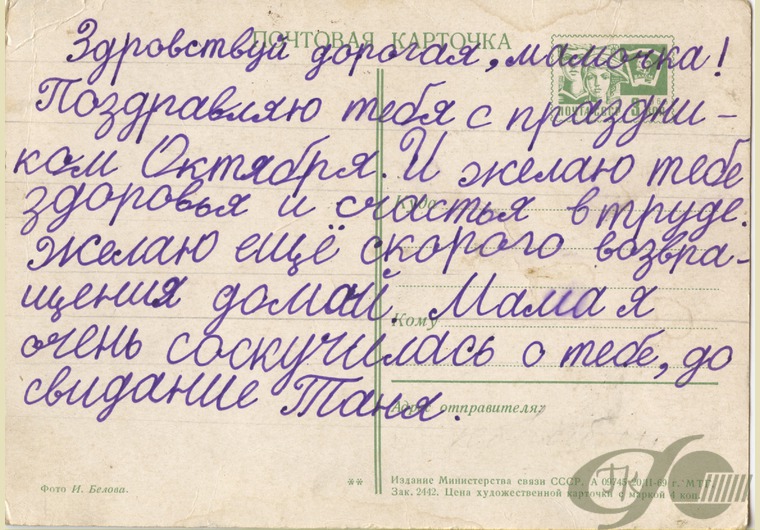 ПОЧТОВАЯ КАРТОЧКА
Здровствуй дорогая, мамочка!
Поздравляю тебя с праздни-
ком Октября. И желаю тебе
здоровья и счастья в труде.
желаю ещё скорого возвра-
щения домой. Мама я
очень соскучилась о тебе, до
свидание Таня.
Куда
Кому
Адрес отправителя:
Фото И. Белова.
**
Издание Министерства связи СССР. А 09745 20.II-69 г. МТГ
Зак. 2442. Цена художественной карточки с маркой 4 коп.